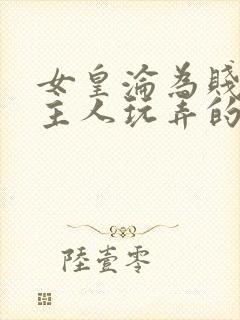 女皇淪為賤
主人玩弄的
陸壹零